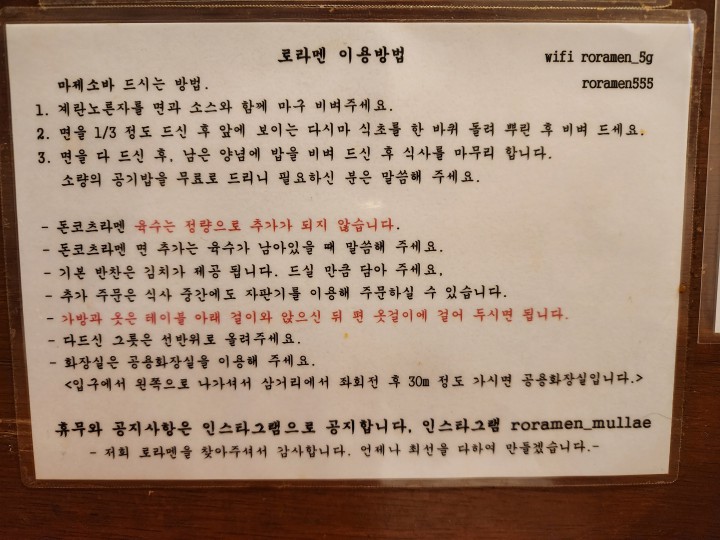 로라멘 이용방법
wifi roramen_5g
roramen555
마제소바 드시는 방법.
1. 계란노른자를 면과 소스와 함께 마구 비벼주세요.
2. 면을 1/3 정도 드신 후 앞에 보이는 다시마 식초를 한 바퀴 돌려 뿌린 후 비벼 드세요.
3. 면을 다 드신 후, 남은 양념에 밥을 비벼 드신 후 식사를 마무리 합니다.
소량의 공기밥을 무료로 드리니 필요하신 분은 말씀해 주세요.
- 돈코츠라멘 육수는 정량으로 추가가 되지 않습니다.
- 돈코츠라멘 면 추가는 육수가 남아있을 때 말씀해 주세요.
- 기본 반찬은 김치가 제공 됩니다. 드실 만큼 담아 주세요.
- 추가 주문은 식사 중간에도 자판기를 이용해 주문하실 수 있습니다.
- 가방과 옷은 테이블 아래 걸이와 앉으신 뒤 편 옷걸이에 걸어 두시면 됩니다.
- 다드신 그릇은 선반위로 올려주세요.
- 화장실은 공용화장실을 이용해 주세요.
<입구에서 왼쪽으로 나가셔서 삼거리에서 좌회전 후 30m 정도 가시면 공용화장실입니다.>
휴무와 공지사항은 인스타그램으로 공지합니다. 인스타그램 roramen_mullae
- 저희 로라멘을 찾아주셔서 감사합니다. 언제나 최선을 다하여 만들겠습니다.-